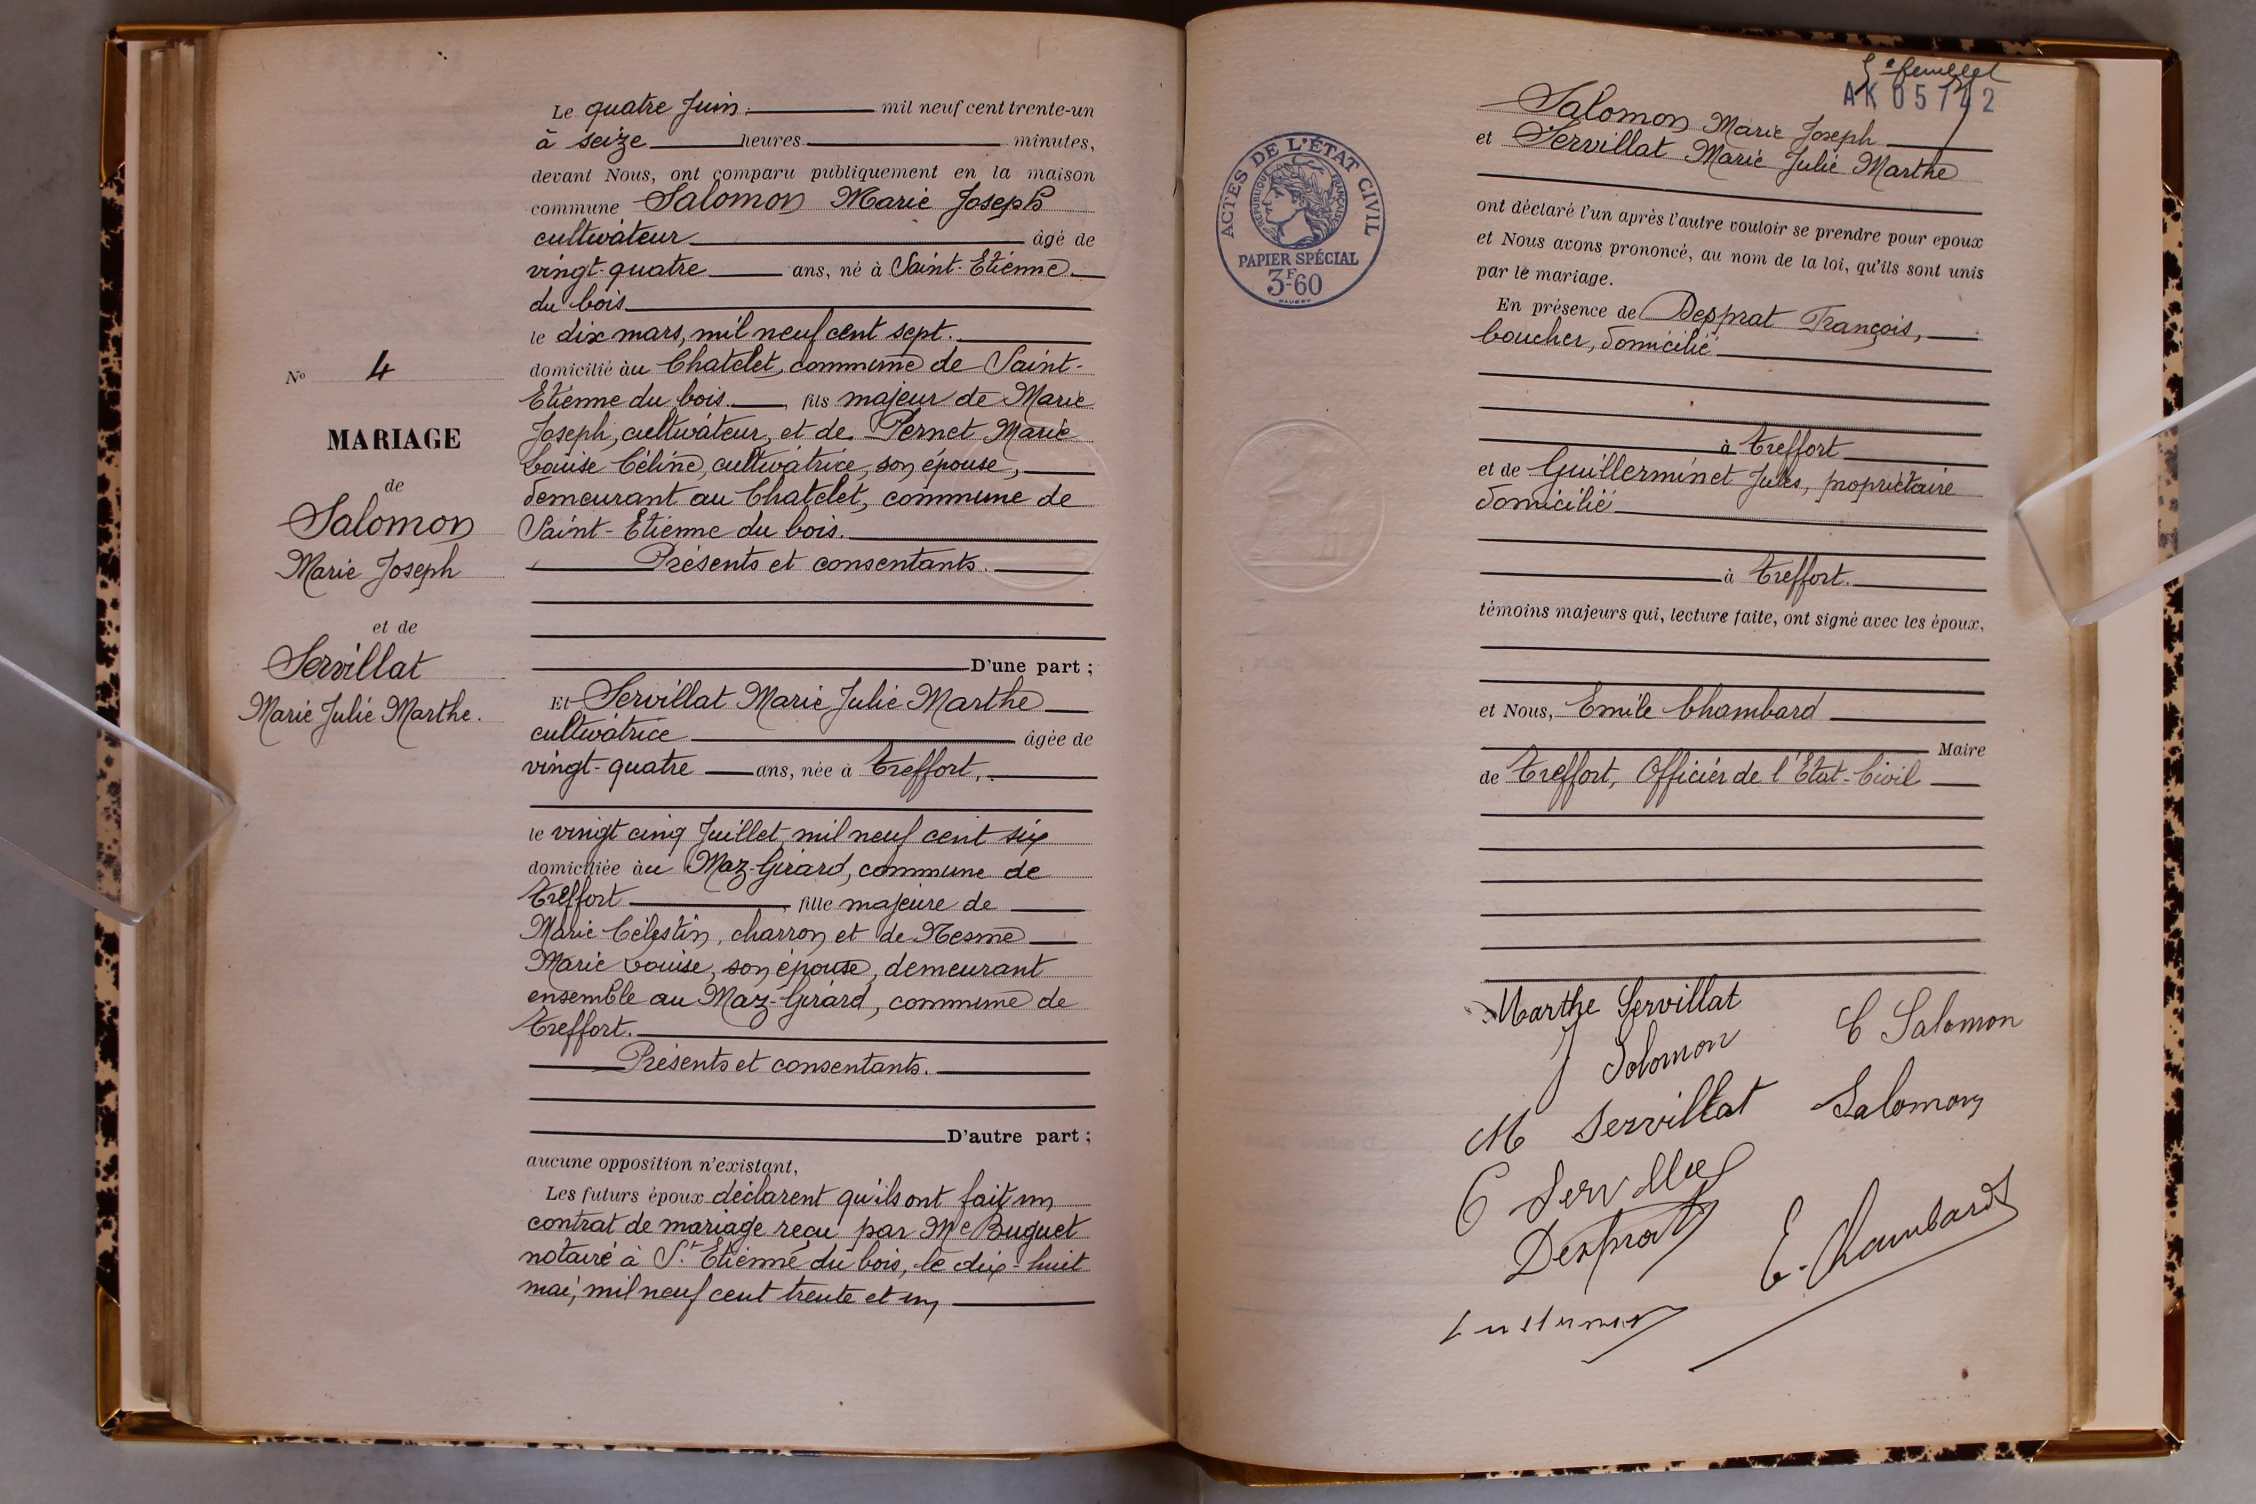 Le quatre Juin. mil neuf cent trente-un
à seize heures minutes,
devant Nous, ont comparu publiquement en la maison
commune Salomon Marie Joseph
cultivateur âgé de
vingt-quatre ans, né à Saint-Etienne
du bois
le dix mars, mil neuf cent sept.
domicilié au Chatelet, commune de Saint-
Etienne du bois. , fils majeur de Marie
Joseph, cultivateur, et de Pernet Marie
Louise Céline, cultivatrice, son épouse,
demeurant au Chatelet, commune de
Saint-Etienne du bois.
Présents et consentants.
D'une part ;
Et Servillat Marie Julie Marthe
cultivatrice âgée de
vingt-quatre ans, née à Treffort,
le vingt cinq Juillet, mil neuf cent six
domiciliée au Maz-Girard, commune de
Treffort , fille majeure de
Marie Célestin, charron et de Nesme
Marie Louise, son épouse, demeurant
ensemble au Maz-Girard, commune de
Treffort.
Présents et consentants.
D'autre part ;
aucune opposition n'existant,
Les futurs époux déclarent qu'ils ont fait un
contrat de mariage reçu par Me Buguet
notaire à St Etienne du bois, le dix-huit
mai, mil neuf cent trente et un
No 4
MARIAGE
de
Salomon
Marie Joseph
et de
Servillat
Marie Julie Marthe.
5e feuillet
AK 05742
Salomon Marie Joseph
et Servillat Marie Julie Marthe
ont déclaré l'un après l'autre vouloir se prendre pour époux
et Nous avons prononcé, au nom de la loi, qu'ils sont unis
par le mariage.
En présence de Desprat François,
boucher, domicilié
à Treffort
et de Guillerminet Jules, propriétaire
domicilié
à Treffort.
témoins majeurs qui, lecture faite, ont signé avec les époux,
et Nous, Emile Chambard
Maire
de Treffort, Officier de l'Etat-Civil
ACTES DE L'ÉTAT CIVIL
RÉPUBLIQUE FRANÇAISE
PAPIER SPÉCIAL
3F60
Marthe Servillat
J Salomon
C Salomon
M Servillat
Salomon
C Servillat
Desprat
E. Chambard